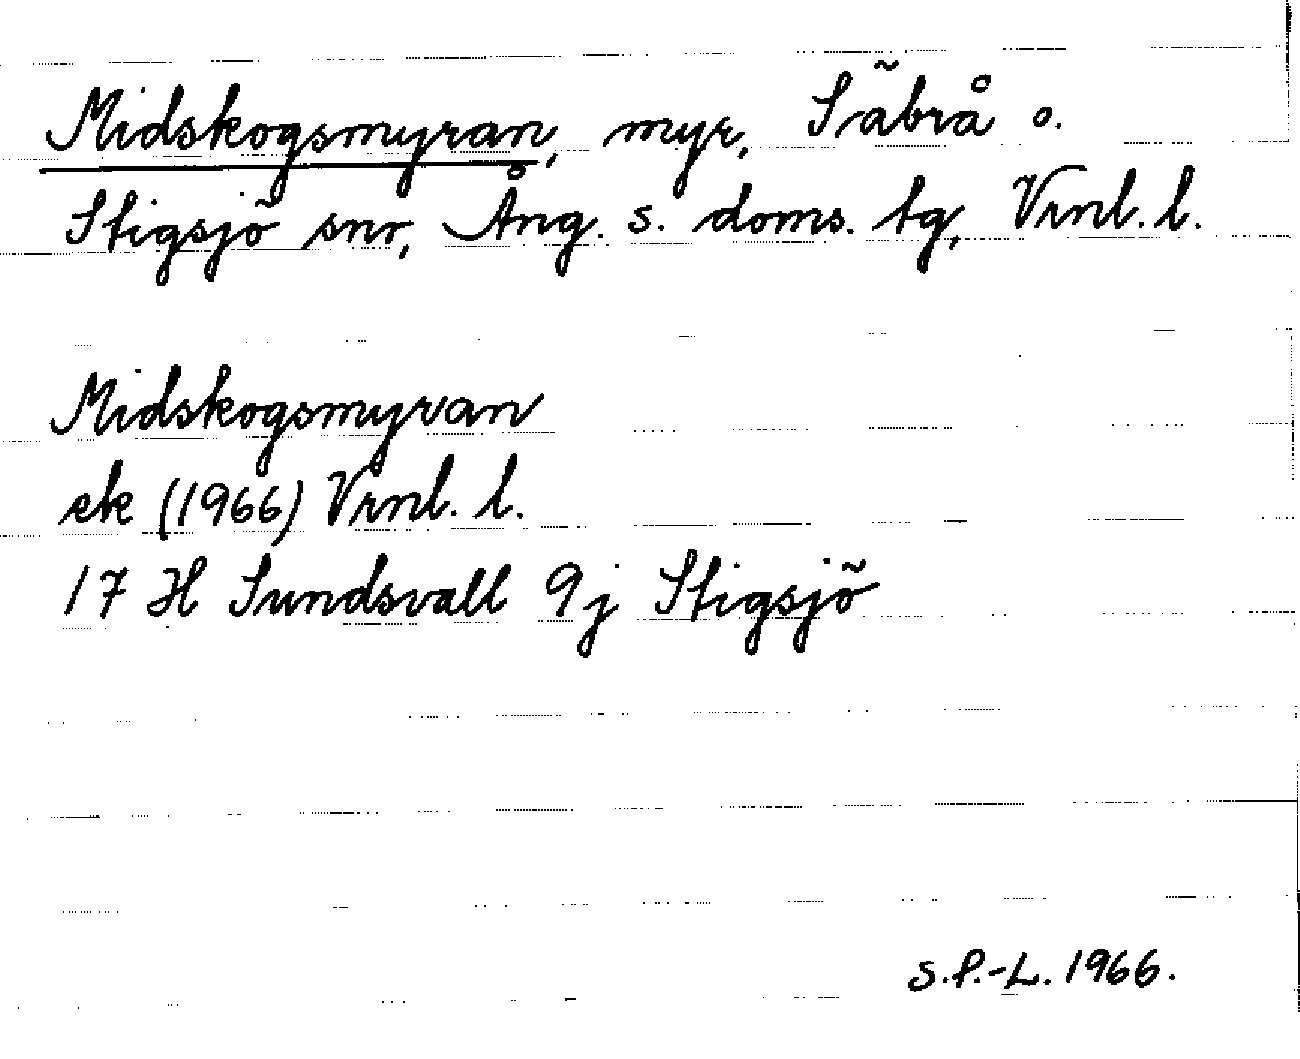 Midskogsmyran, myr, Säbrå o.
Stigsjö snr, Ång. s. doms. tg, Vrnl. l.
Midskogsmyran
ek (1966) Vrnl. l.
17 H Sundsvall 9j Stigsjö
S.P.-L. 1966.